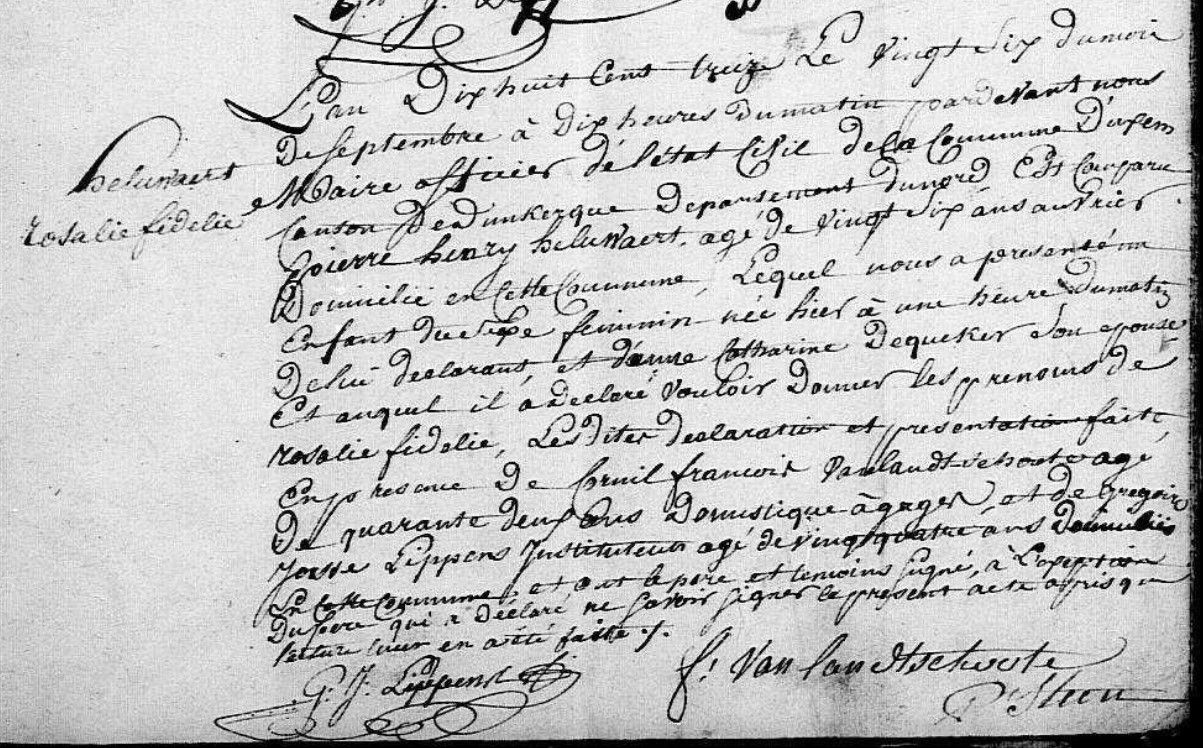 heluwaert
rosalie fidelie
L'an Dix huit Cent treize Le vingt six du mois
De septembre à Dix heures du matin pardevant nous
Maire officier de l'état Civil de la Commune D'uxem
Canton De Dunkerque Departement du nord Est Comparu
pierre henry heluwaert, agé de vingt six ans ouvrier
Domicilié en Cette Commune, Lequel nous a presenté un
Enfant du sexe feminin née hier à une heure du matin
De lui declarant, et d'anne Catharine Dequeker Son epouse
Et auquel il a declaré vouloir Donner les prenoms de
rosalie fidelie, Les Dites declaration et presentation faite
En presence De Cornil francois Vanlandtschoote agé
De quarante deux ans Domestique à gages, et de Gregoire
Josse Lippens Instituteur agé de vingt quatre ans Domiciliés
En Cette Commune, et ont le pere et temoins signé, à L'exeption
Du pere qui a declaré ne savoir signer le present acte apris que
lecture leur en a été faite ./.
G. J. Lippens
f. Van Landtschoote